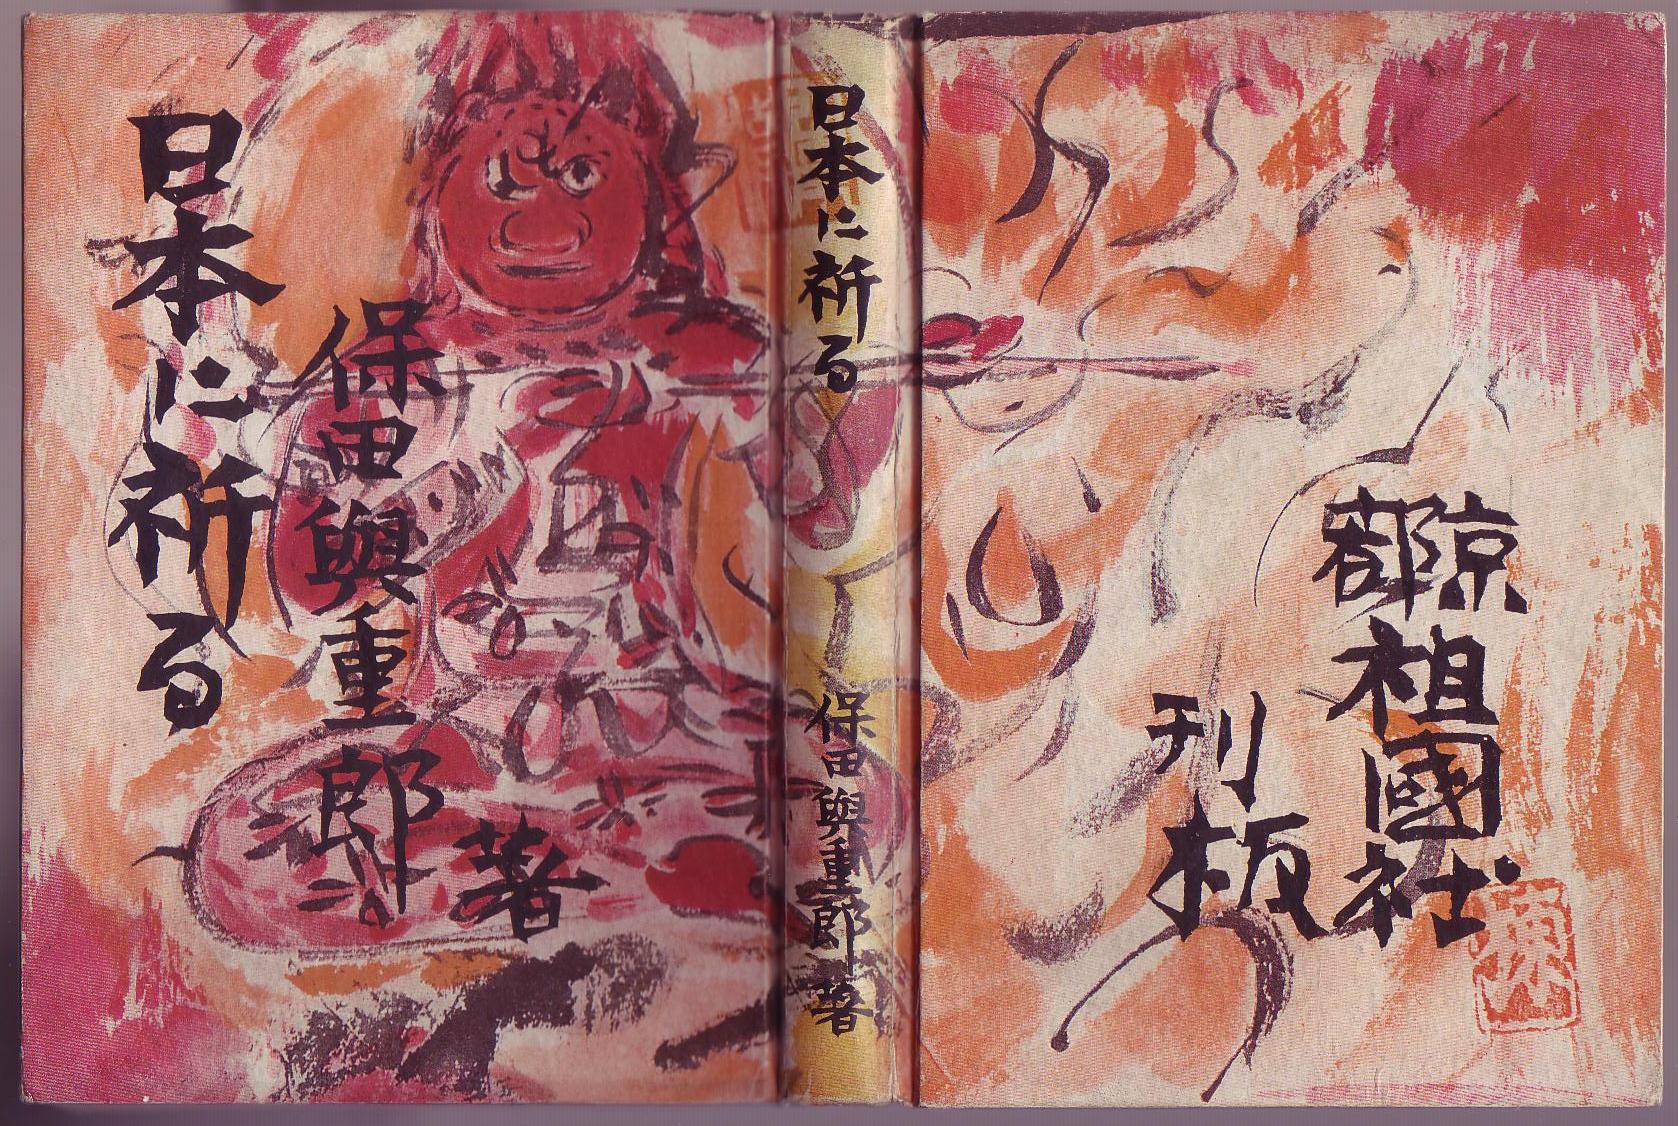 日本に祈る
保田與重郎
著
日本に祈る
保田與重郎著
京都
祖國社
刊板